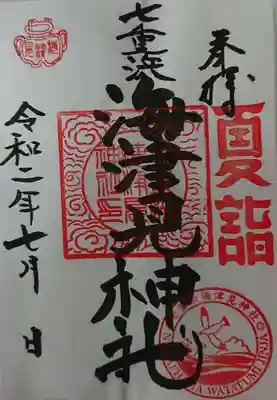 奉拝
夏詣
七重浜
海津見神社
令和二年七月 日
海津見神社
WATATUMI JINJA